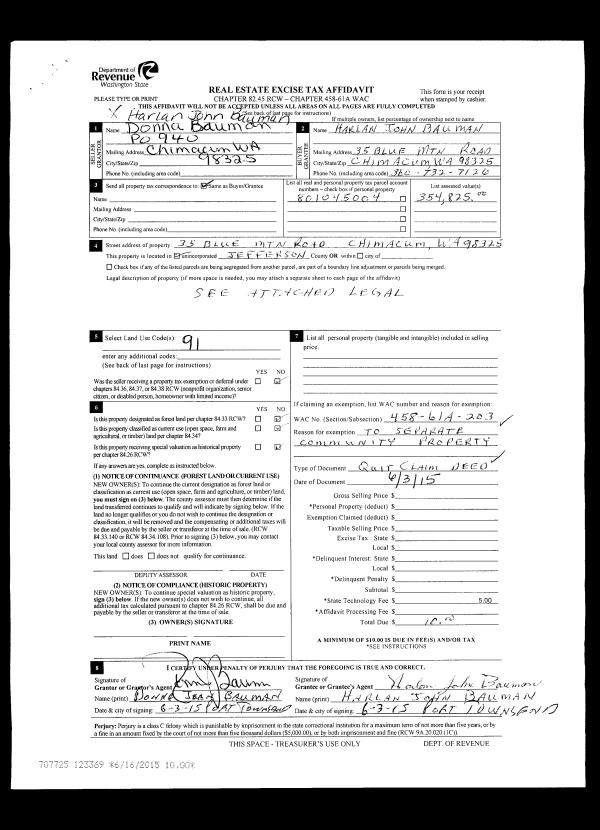 Department of
Revenue
Washington State
REAL ESTATE EXCISE TAX AFFIDAVIT
This form is your receipt
when stamped by cashier.
PLEASE TYPE OR PRINT
CHAPTER 82.45 RCW – CHAPTER 458-61A WAC
THIS AFFIDAVIT WILL NOT BE ACCEPTED UNLESS ALL AREAS ON ALL PAGES ARE FULLY COMPLETED
(See back of last page for instructions)
X Harlan John Bauman
If multiple owners, list percentage of ownership next to name
1 Name Donna Bauman
PO 940
SELLER GRANTOR
Mailing Address Chimacum WA
City/State/Zip 98325
Phone No. (including area code)
2 Name HARLAN JOHN BAUMAN
BUYER GRANTEE
Mailing Address 35 BLUE MTN ROAD
City/State/Zip CHIMACUM WA 98325
Phone No. (including area code) 360-732-7126
3 Send all property tax correspondence to: Same as Buyer/Grantee
Name
Mailing Address
City/State/Zip
Phone No. (including area code)
List all real and personal property tax parcel account
numbers – check box if personal property
801045004
List assessed value(s)
354,825.00
4 Street address of property: 35 BLUE MTN ROAD CHIMACUM, WA 98325
This property is located in unincorporated JEFFERSON County OR within city of
Check box if any of the listed parcels are being segregated from another parcel, are part of a boundary line adjustment or parcels being merged.
Legal description of property (if more space is needed, you may attach a separate sheet to each page of the affidavit)
SEE ATTACHED LEGAL
5 Select Land Use Code(s): 91
enter any additional codes:
(See back of last page for instructions)
YES NO
Was the seller receiving a property tax exemption or deferral under
chapters 84.36, 84.37, or 84.38 RCW (nonprofit organization, senior
citizen, or disabled person, homeowner with limited income)?
6 YES NO
Is this property designated as forest land per chapter 84.33 RCW?
Is this property classified as current use (open space, farm and
agricultural, or timber) land per chapter 84.34?
Is this property receiving special valuation as historical property
per chapter 84.26 RCW?
If any answers are yes, complete as instructed below.
(1) NOTICE OF CONTINUANCE (FOREST LAND OR CURRENT USE)
NEW OWNER(S): To continue the current designation as forest land or
classification as current use (open space, farm and agriculture, or timber) land,
you must sign on (3) below. The county assessor must then determine if the
land transferred continues to qualify and will indicate by signing below. If the
land no longer qualifies or you do not wish to continue the designation or
classification, it will be removed and the compensating or additional taxes will
be due and payable by the seller or transferor at the time of sale. (RCW
84.33.140 or RCW 84.34.108). Prior to signing (3) below, you may contact
your local county assessor for more information.
This land does does not qualify for continuance.
DEPUTY ASSESSOR DATE
(2) NOTICE OF COMPLIANCE (HISTORIC PROPERTY)
NEW OWNER(S): To continue special valuation as historic property,
sign (3) below. If the new owner(s) does not wish to continue, all
additional tax calculated pursuant to chapter 84.26 RCW, shall be due and
payable by the seller or transferor at the time of sale.
(3) OWNER(S) SIGNATURE
PRINT NAME
7 List all personal property (tangible and intangible) included in selling
price.
If claiming an exemption, list WAC number and reason for exemption:
WAC No. (Section/Subsection) 458-61A-203
Reason for exemption TO SEPARATE
COMMUNITY PROPERTY
Type of Document QUIT CLAIM DEED
Date of Document 6/3/15
Gross Selling Price $
*Personal Property (deduct) $
Exemption Claimed (deduct) $
Taxable Selling Price $
Excise Tax : State $
Local $
*Delinquent Interest: State $
Local $
*Delinquent Penalty $
Subtotal $
*State Technology Fee $ 5.00
*Affidavit Processing Fee $
Total Due $ 10.00
A MINIMUM OF $10.00 IS DUE IN FEE(S) AND/OR TAX
*SEE INSTRUCTIONS
8 I CERTIFY UNDER PENALTY OF PERJURY THAT THE FOREGOING IS TRUE AND CORRECT.
Signature of
Grantor or Grantor's Agent
Name (print) DONNA JEAN BAUMAN
Date & city of signing: 6-3-15 PORT TOWNSEND
Signature of
Grantee or Grantee's Agent Harlan John Bauman
Name (print) HARLAN JOHN BAUMAN
Date & city of signing: 6-3-15 PORT TOWNSEND
Perjury: Perjury is a class C felony which is punishable by imprisonment in the state correctional institution for a maximum term of not more than five years, or by
a fine in an amount fixed by the court of not more than five thousand dollars ($5,000.00), or by both imprisonment and fine (RCW 9A.20.020 (1C)).
THIS SPACE - TREASURER'S USE ONLY
DEPT. OF REVENUE
707725 123369 *6/16/2015 10.00*